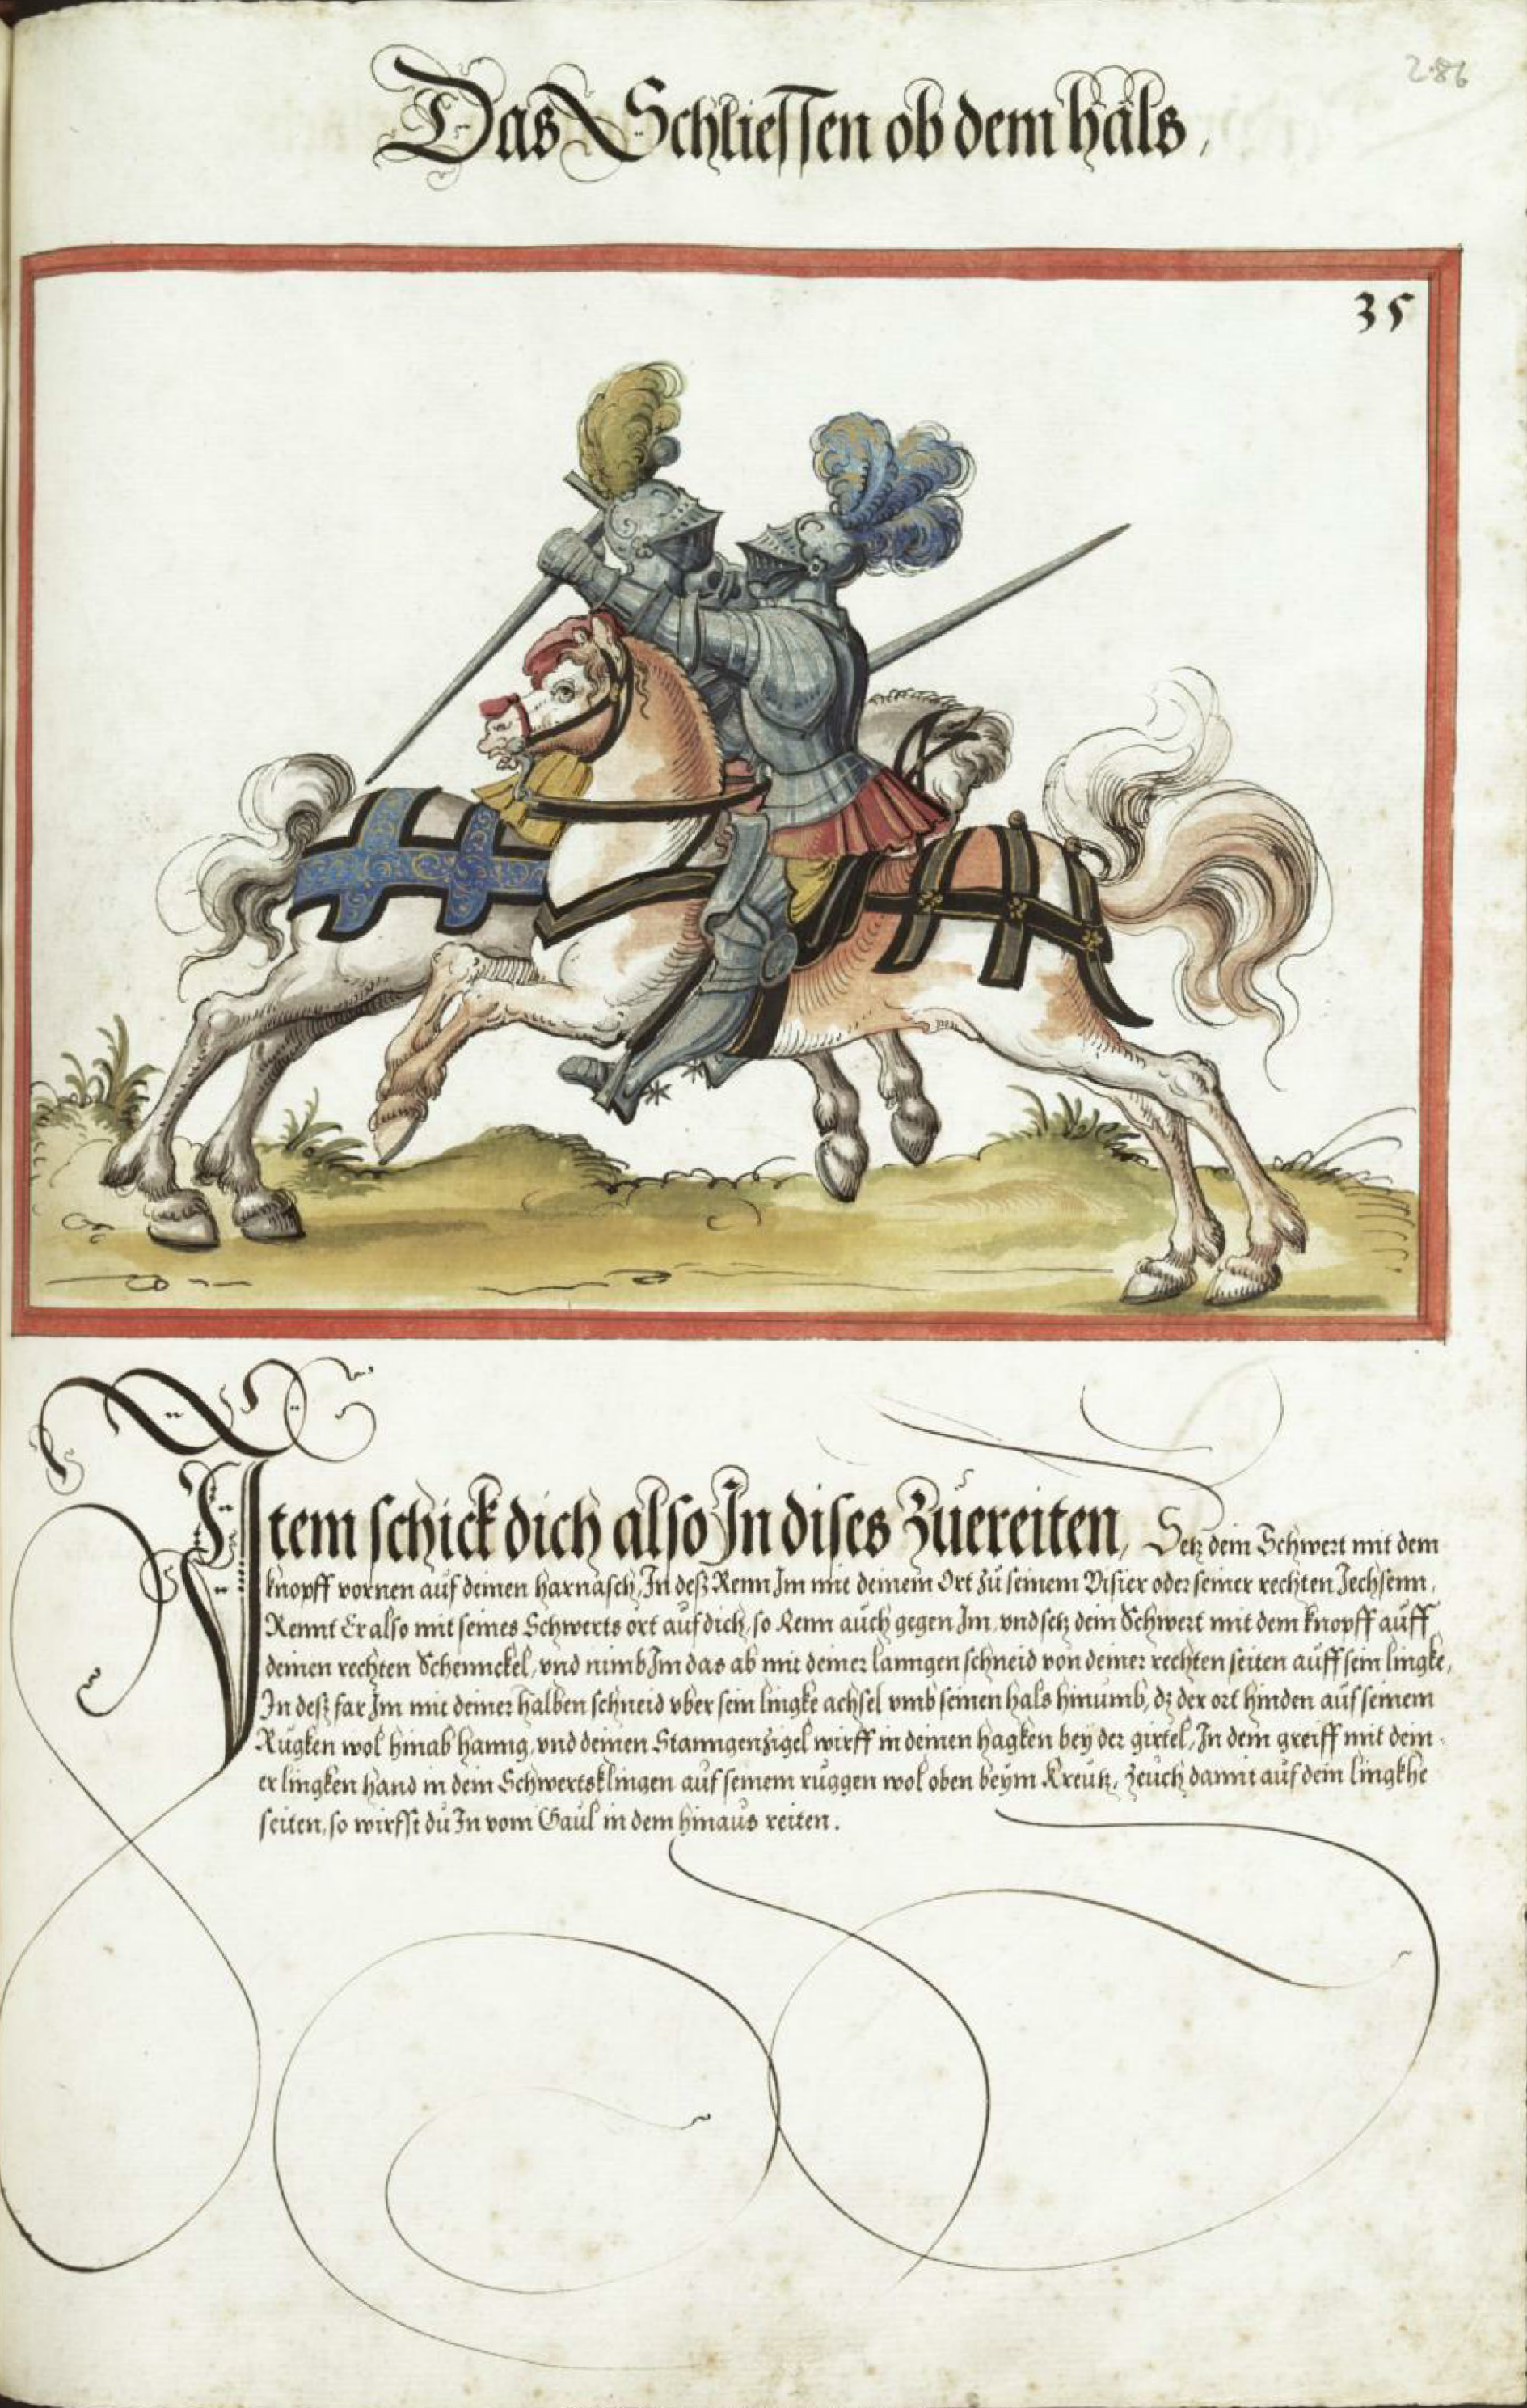 286
Das Schliessen ob dem hals,
35
Item schick dich also In dises Zuereiten, Setz dein Schwert mit dem
knopff vornen auf deinen harnasch, In deß Renn Im mit deinem Ort zu seinem Visier oder seiner rechten Jechsenn,
Rennt Er also mit seines Schwerts ort auf dich, so Renn auch gegen Im, vnd setz dein Schwert mit dem knopff auff
deinen rechten Schennckel, vnd nimb Im das ab mit deiner lanngen schneid von deiner rechten seiten auff sein lingke,
In deß far Im mit deiner halben schneid vber sein lingke achsel vmb seinen hals hinumb, dz der ort hinden auf seinem
Rugken wol hinab hanng, vnd deinen Stanngenzigel wirff in deinen hagken bey der girtel, In dem greiff mit dein-
er lingken hand in dein Schwertsklingen auf seinem ruggen wol oben beym Kreutz, zeuch damit auf dein lingkhe
seiten, so wirfst du In vom Gaul in dem hinaus reiten.